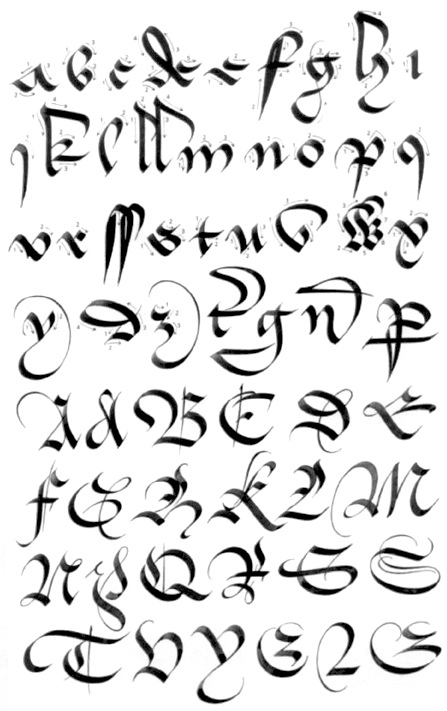 a b c d e f g h ı
j k l ll m n o p q
v r ſſ s t u v w x
y z g n p
A A B C D E
F G H K L M
N P Q R S S
T V Y